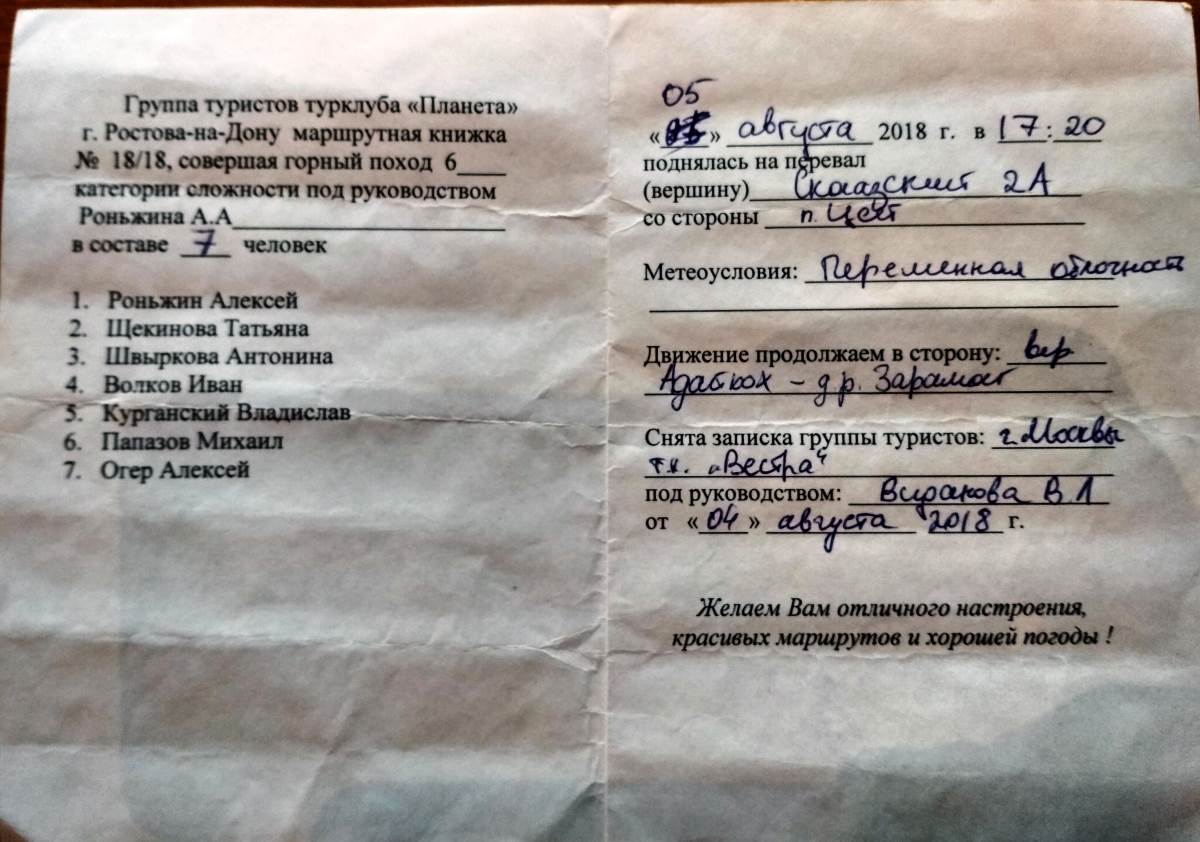 Группа туристов турклуба «Планета»
г. Ростова-на-Дону маршрутная книжка
№ 18/18, совершая горный поход 6____
категории сложности под руководством
Роньжина А.А
в составе 7 человек
1. Роньжин Алексей
2. Щекинова Татьяна
3. Швыркова Антонина
4. Волков Иван
5. Курганский Владислав
6. Папазов Михаил
7. Огер Алексей
05
« » августа 2018 г. в 17:20
поднялась на перевал
(вершину) Сказский 2А
со стороны п. Цей
Метеоусловия: Переменная облочность
Движение продолжаем в сторону: вер
Адайхох – д.р. Зарамаг
Снята записка группы туристов: г. Москвы
т.к. „Вестра"
под руководством: В.Л
от «04» августа 2018 г.
Желаем Вам отличного настроения,
красивых маршрутов и хорошей погоды !